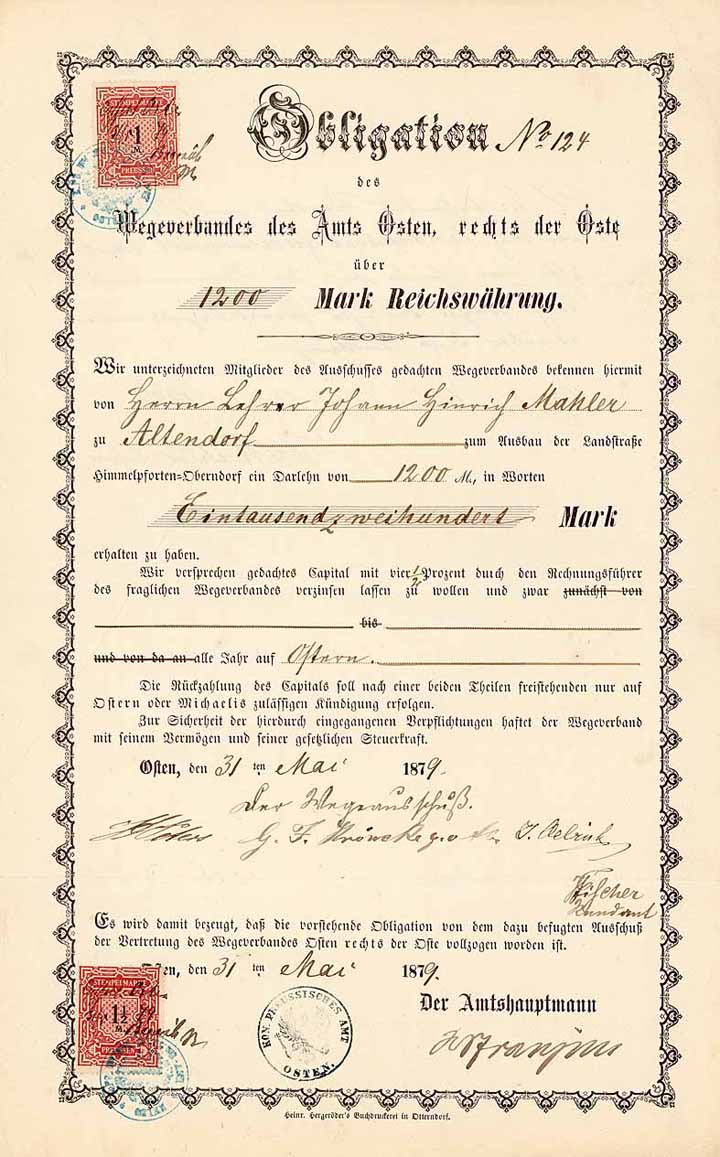 STEMPELMARKE
1
M.
PREUSSEN
Obligation No 124
des
Wegeverbandes des Amts Osten, rechts der Oste
über
1200 Mark Reichswährung.
Wir unterzeichneten Mitglieder des Ausschusses gedachten Wegeverbandes bekennen hiermit
von Herrn Lehrer Johann Hinrich Mahler
zu Altendorf zum Ausbau der Landstraße
Himmelpforten-Oberndorf ein Darlehn von 1200 M., in Worten
Eintausendzweihundert Mark
erhalten zu haben.
Wir versprechen gedachtes Capital mit vier 1/2 Prozent durch den Rechnungsführer
des fraglichen Wegeverbandes verzinsen lassen zu wollen und zwar zunächst von
bis
und von da an alle Jahr auf Ostern.
Die Rückzahlung des Capitals soll nach einer beiden Theilen freistehenden nur auf
Ostern oder Michaelis zulässigen Kündigung erfolgen.
Zur Sicherheit der hierdurch eingegangenen Verpflichtungen haftet der Wegeverband
mit seinem Vermögen und seiner gesetzlichen Steuerkraft.
Osten, den 31 ten Mai 1879.
Der Wegeausschuß.
G. F. J. Oelrich
Fischer
Es wird damit bezeugt, daß die vorstehende Obligation von dem dazu befugten Ausschuß
der Vertretung des Wegeverbandes Osten rechts der Oste vollzogen worden ist.
den 31 ten Mai 1879.
STEMPELMARKE
1½
M.
PREUSSEN
KÖN. PREUSSISCHES AMT
OSTEN.
Der Amtshauptmann
Heinr. Hergeröder's Buchdruckerei in Otterndorf.